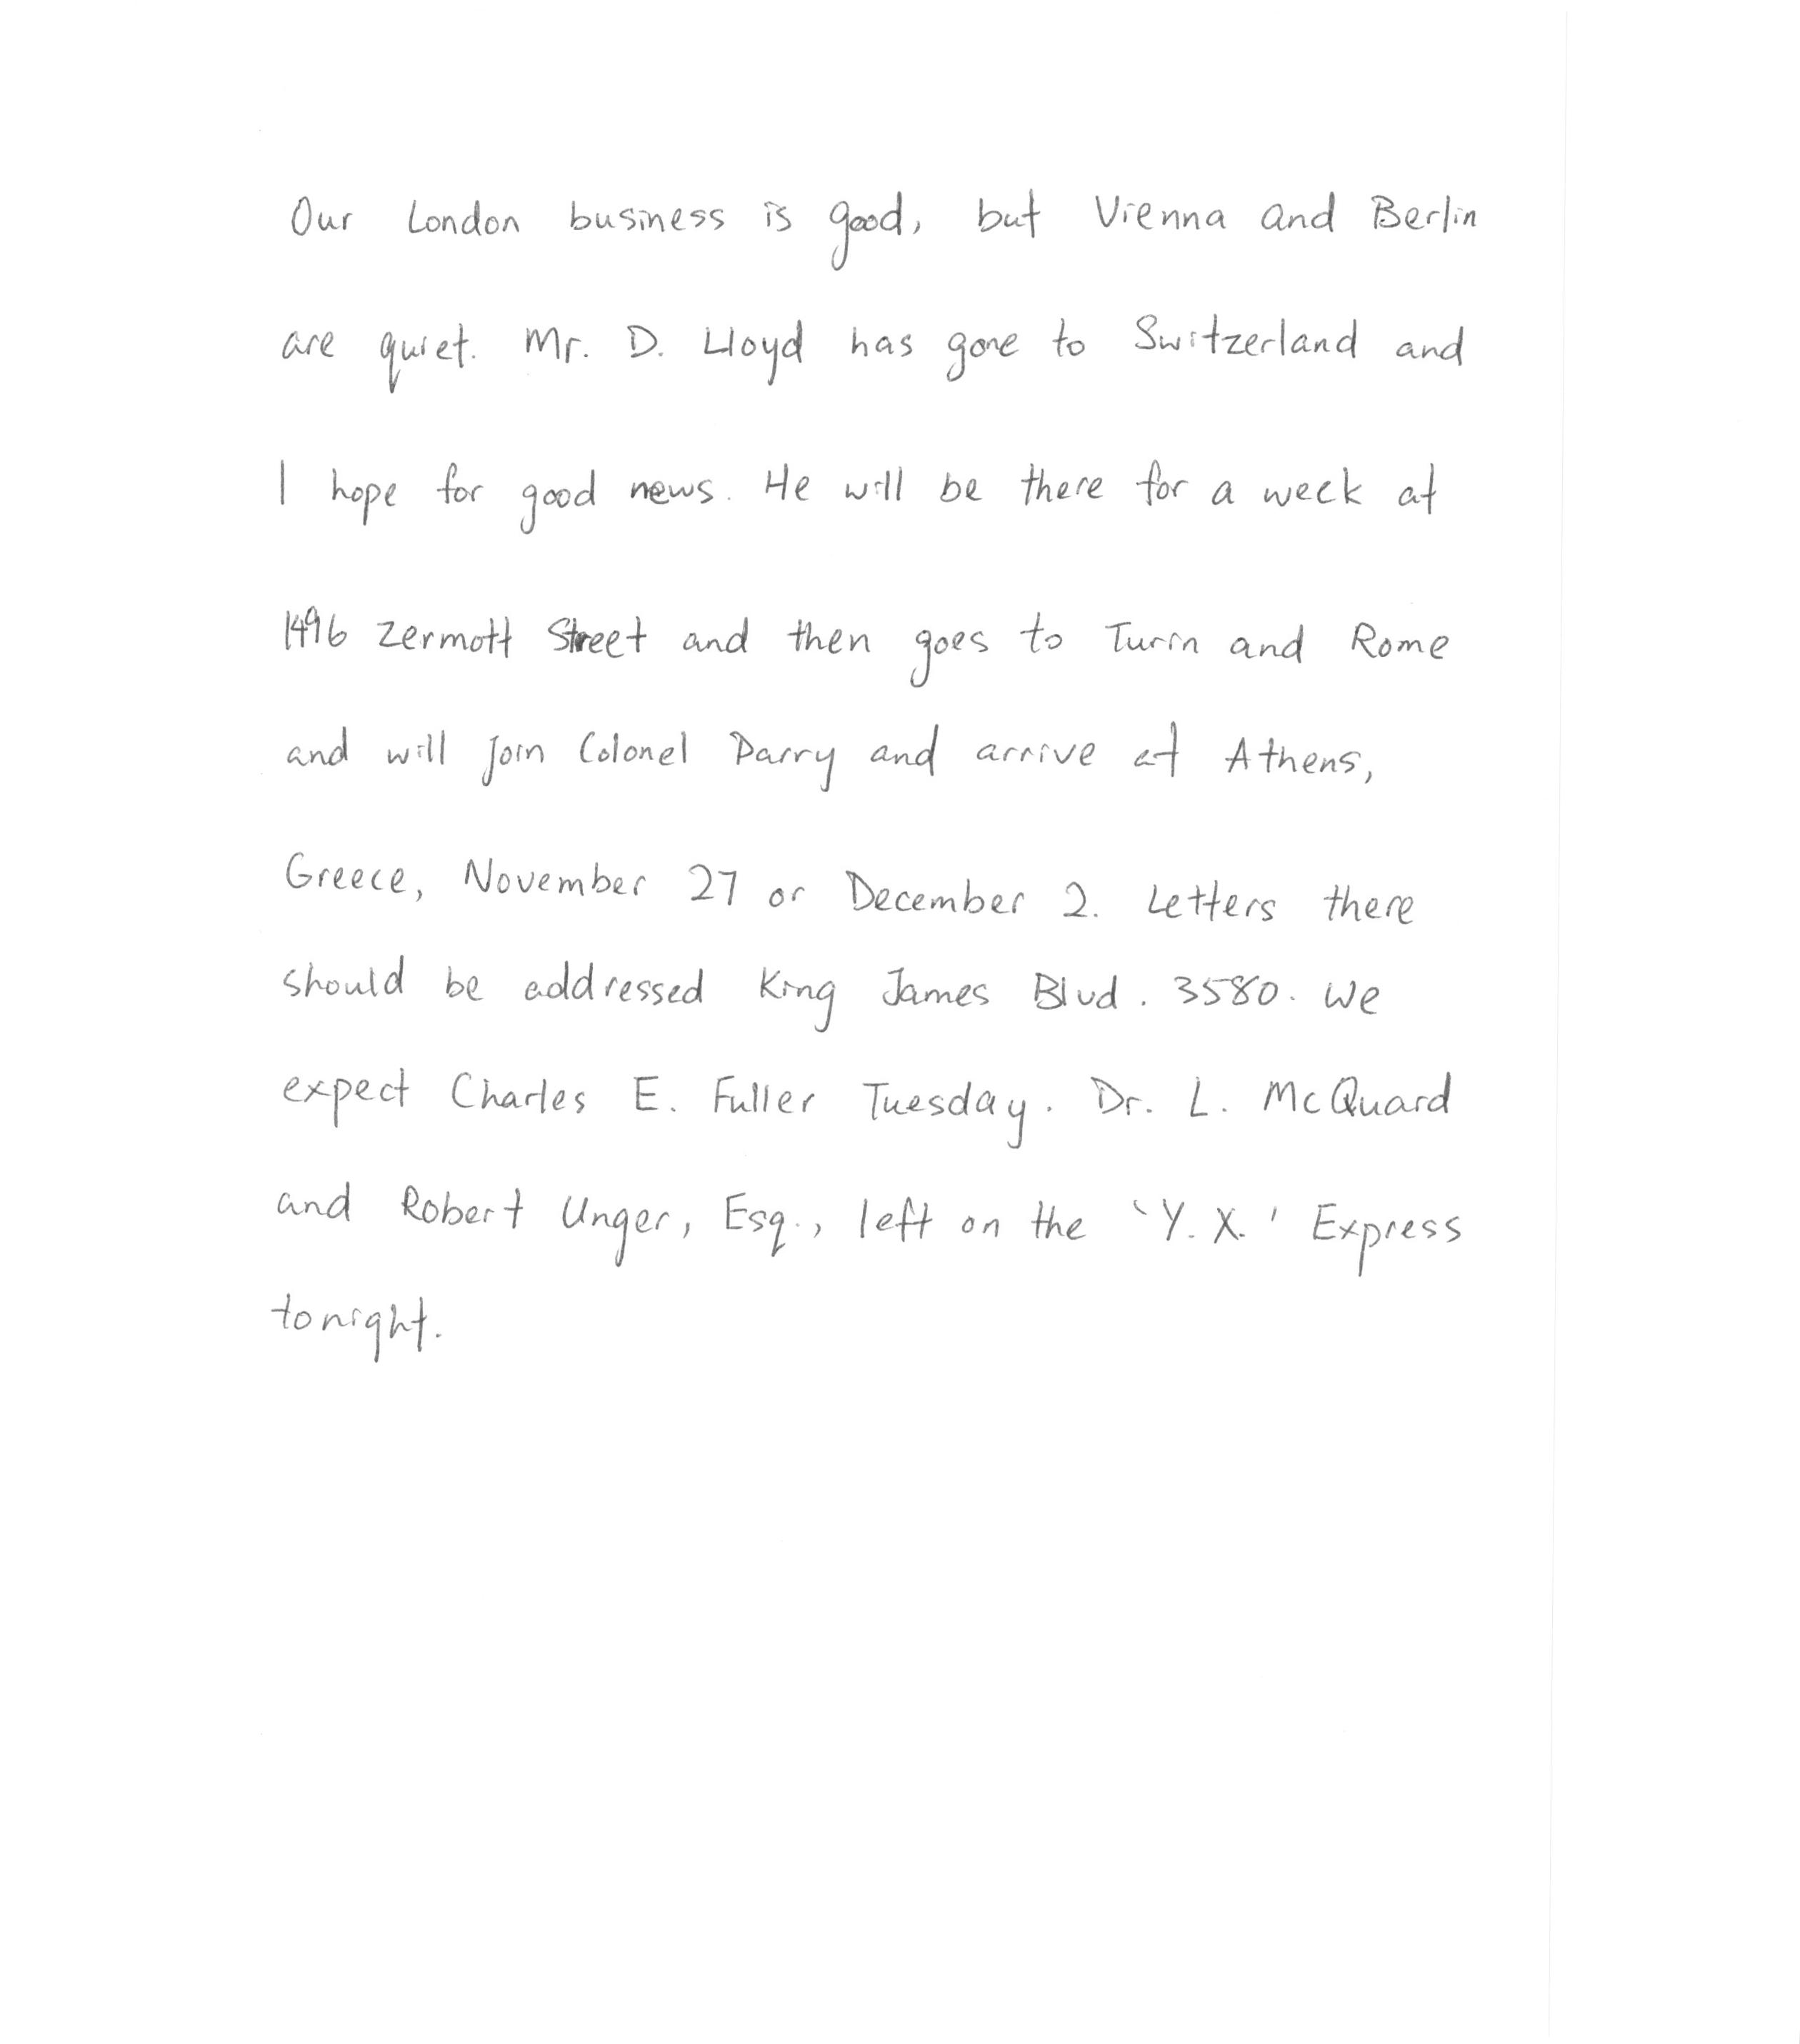 Our London business is good, but Vienna and Berlin
are quiet. Mr. D. Lloyd has gone to Switzerland and
I hope for good news. He will be there for a week at
1496 Zermott Street and then goes to Turin and Rome
and will join Colonel Parry and arrive at Athens,
Greece, November 27 or December 2. Letters there
should be addressed King James Blvd. 3580. We
expect Charles E. Fuller Tuesday. Dr. L. McQuard
and Robert Unger, Esq., left on the 'Y. X.' Express
tonight.